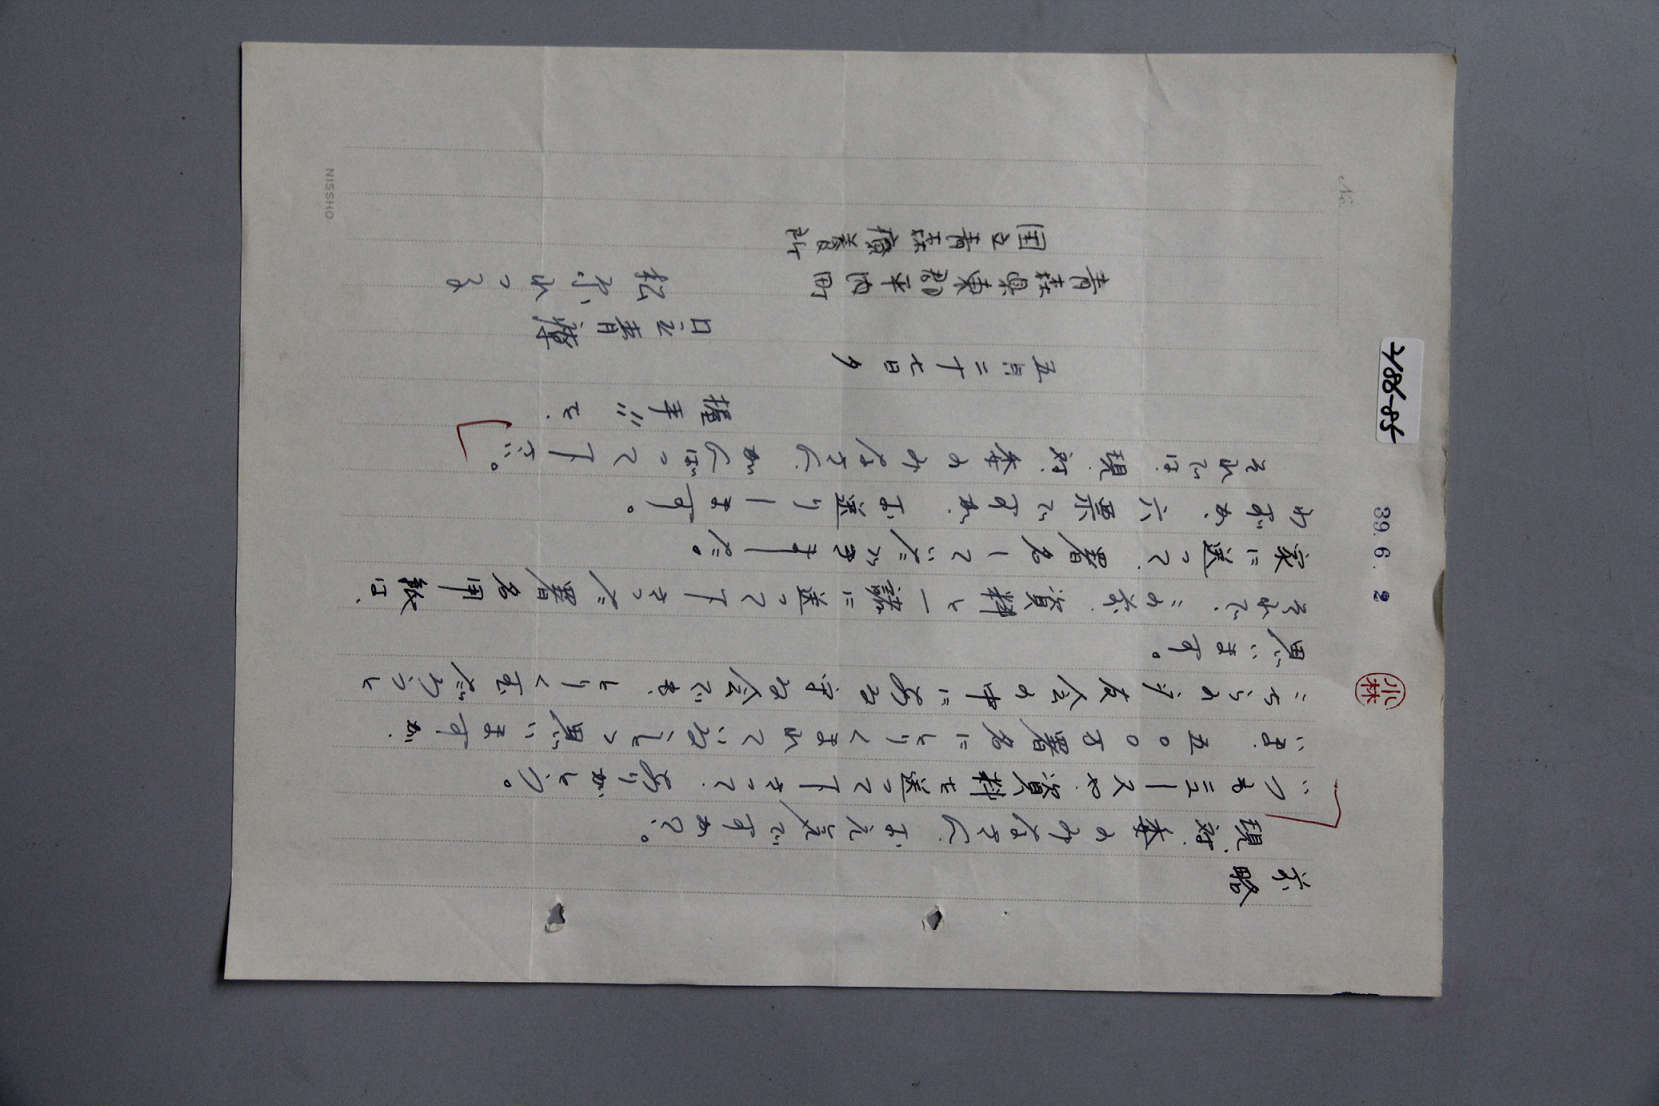 前略
現対委のみなさん、お元気ですか?。
いつもニュースや、資料を送って下さって、ありがとう。
いま、五〇〇万署名にとりくまれていると思いますが、
こちらの友会の中にある守る会でも、とりくむだろうと
思います。
それで、この前、資料と一諸に送って下さった署名用紙は、
家に送って、署名していただきました。
わずか、六票ですが、お送りします。
それでは、現対委のみなさん、がんばって下さい。
握手を、
五月二十七日夕
国立青療
松
青森県東郡平内町
国立青森療養所
No.
2186-85
39.6.2
小林
NISSHO